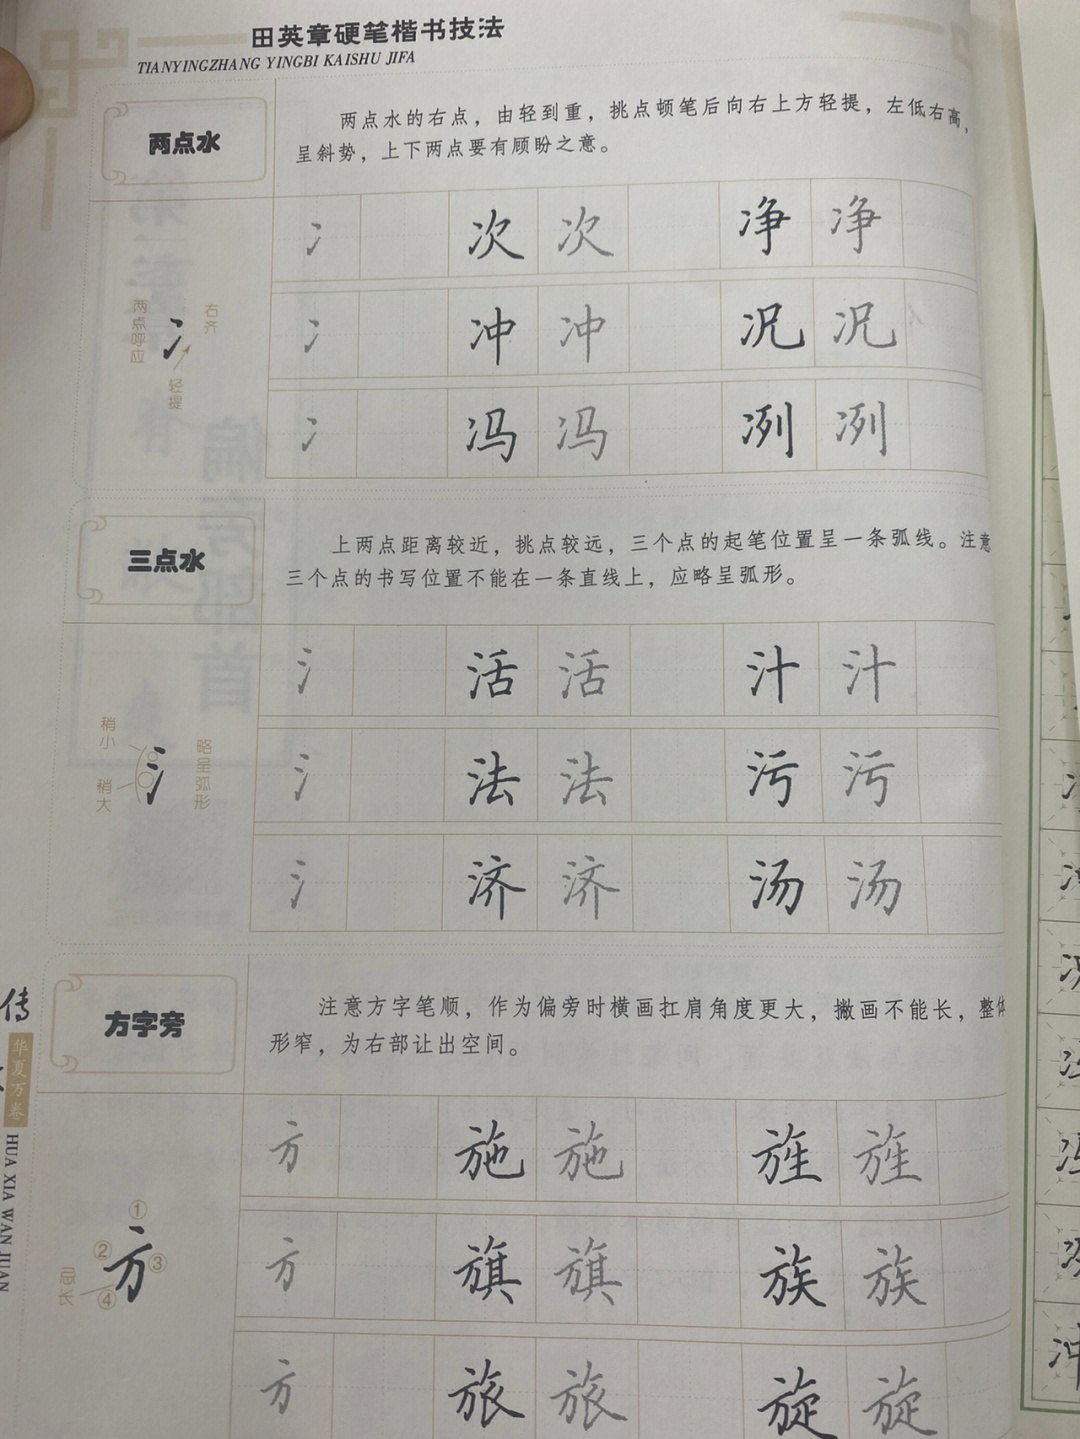 田英章硬笔楷书技法
TIANYINGZHANG YINGBI KAISHU JIFA
两点水
两点水的右点，由轻到重，挑点顿笔后向右上方轻提，左低右高，
呈斜势，上下两点要有顾盼之意。
两点呼应
冫
右齐
轻提
冫 次 次 净 净
冫 冲 冲 况 况
冫 冯 冯 冽 冽
三点水
上两点距离较近，挑点较远，三个点的起笔位置呈一条弧线。注意
三个点的书写位置不能在一条直线上，应略呈弧形。
稍小
稍大
氵
略呈弧形
氵 活 活 汁 汁
氵 法 法 污 污
氵 济 济 汤 汤
方字旁
注意方字笔顺，作为偏旁时横画扛肩角度更大，撇画不能长，整体
形窄，为右部让出空间。
①
②
方
③
④
忌长
方 施 施 旌 旌
方 旗 旗 族 族
方 旅 旅 旋 旋
传
华夏万卷
HUA XIA WAN JUAN
冲